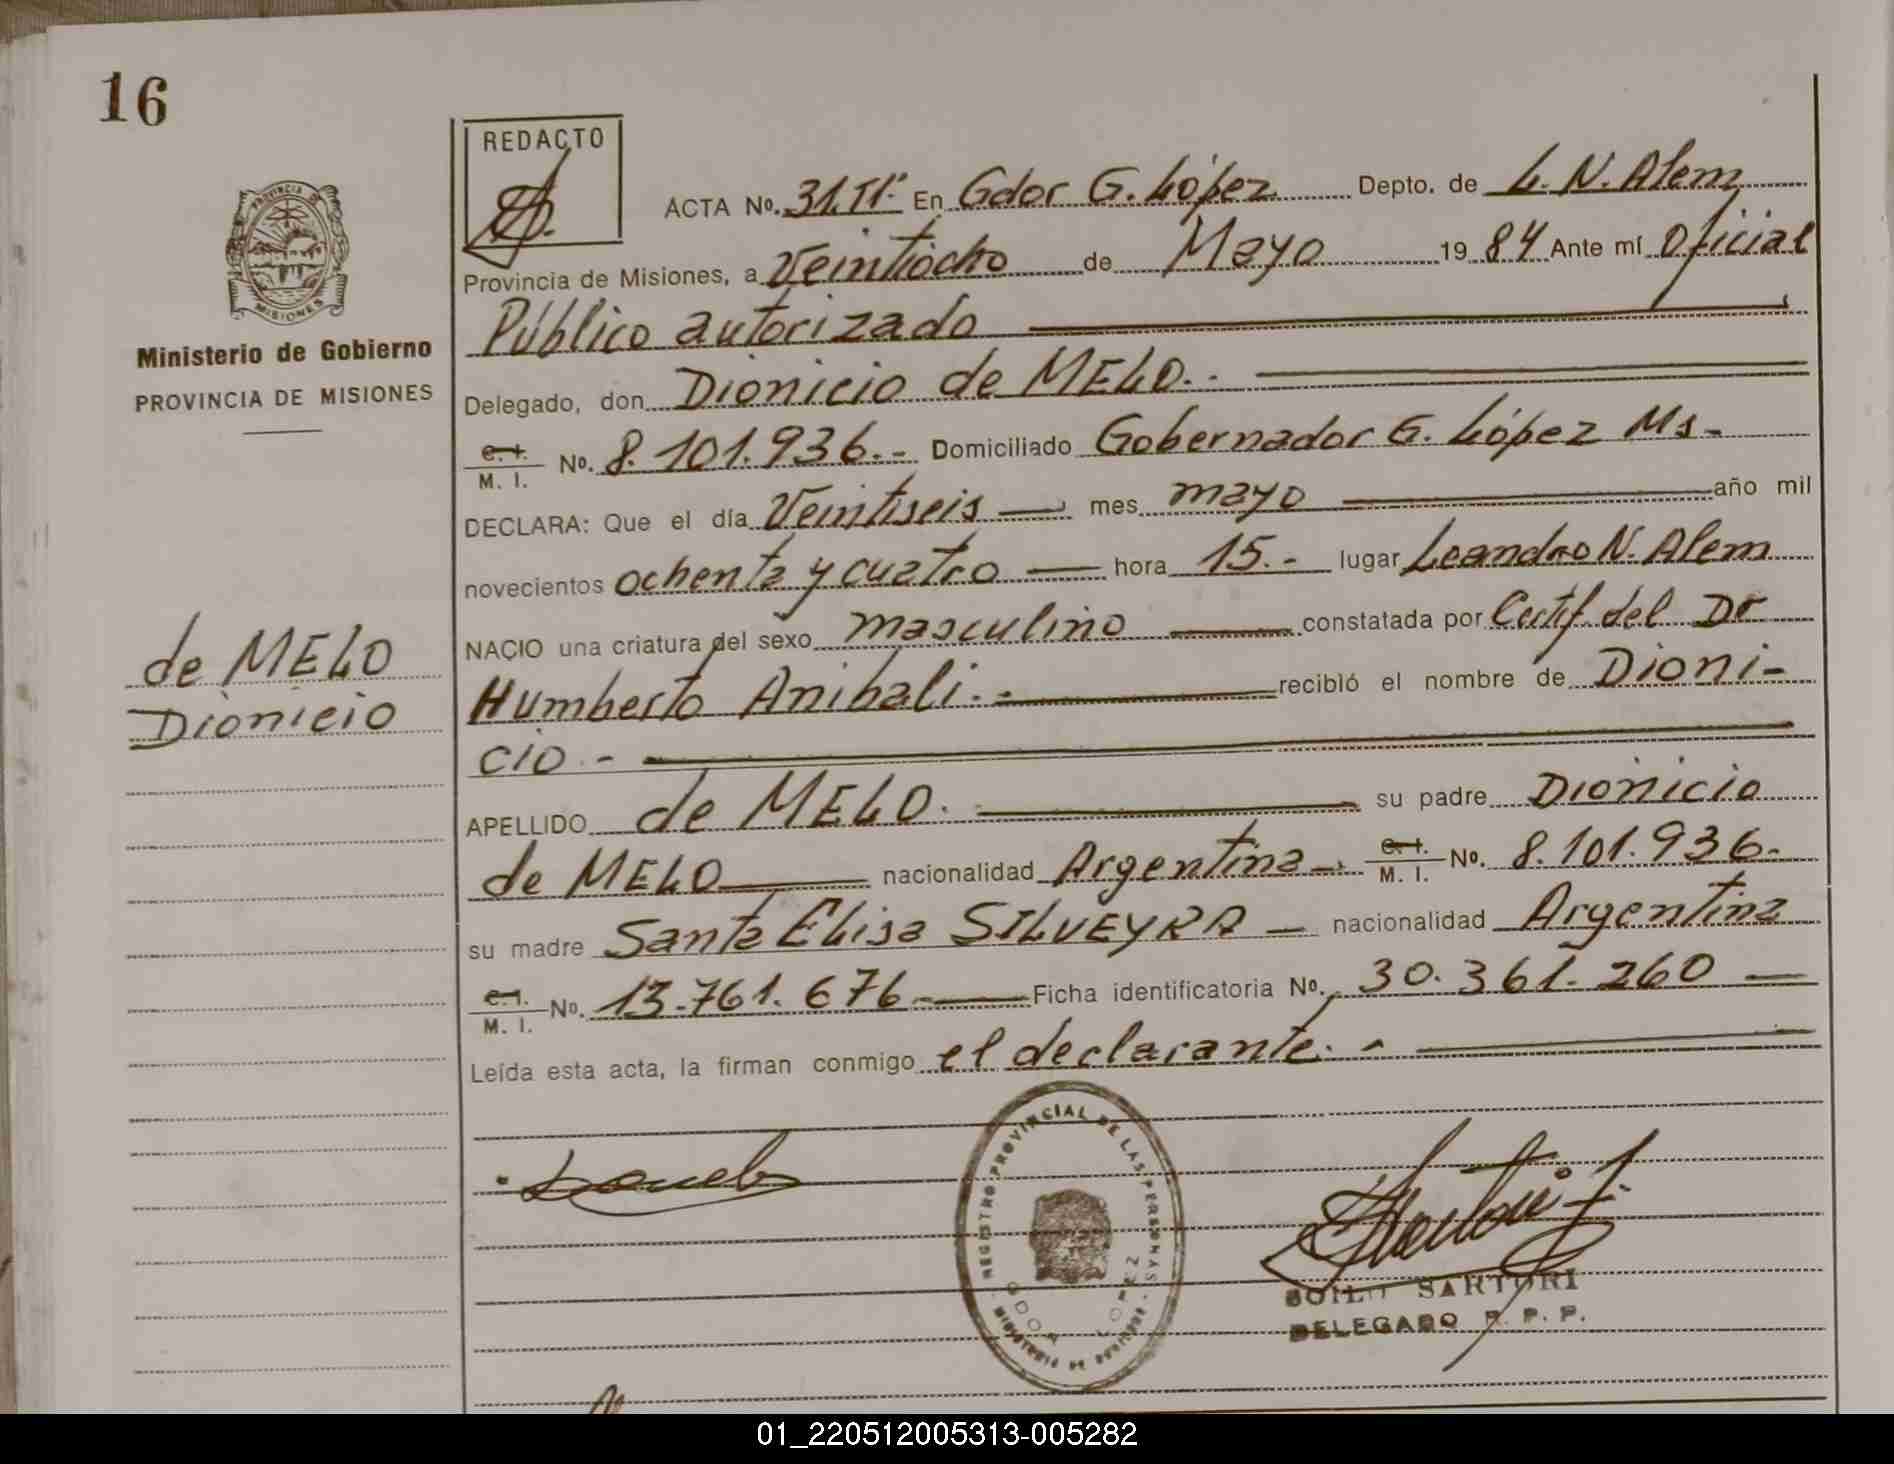 16
PROVINCIA DE
MISIONES
Ministerio de Gobierno
PROVINCIA DE MISIONES
de MELO
Dionicio
REDACTO
ACTA No. 31.Tº. En Gdor G. López Depto. de L. N. Alem
Provincia de Misiones, a Veintiocho de Mayo 1984 Ante mí Oficial
Público autorizado
Delegado, don Dionicio de MELO.-
C. I. M. I. No. 8.101.936.- Domiciliado Gobernador G. López Ms-
DECLARA: Que el día Veintiseis mes mayo año mil
novecientos ochenta y cuatro hora 15.- lugar Leandro N. Alem
NACIO una criatura del sexo masculino constatada por Certif. del Dr
Humberto Anibali.- recibió el nombre de Dioni-
cio.-
APELLIDO de MELO.- su padre Dionicio
de MELO nacionalidad Argentina C. I. M. I. No. 8.101.936-
su madre Santa Elisa SILVEYRA nacionalidad Argentina
C. I. M. I. No. 13.761.676.- Ficha identificatoria No. 30.361.260
Leída esta acta, la firman conmigo el declarante.-
REGISTRO PROVINCIAL DE LAS PERSONAS
GDOR LOPEZ
SARTORI
DELEGADO R. P. P.
01_220512005313-005282